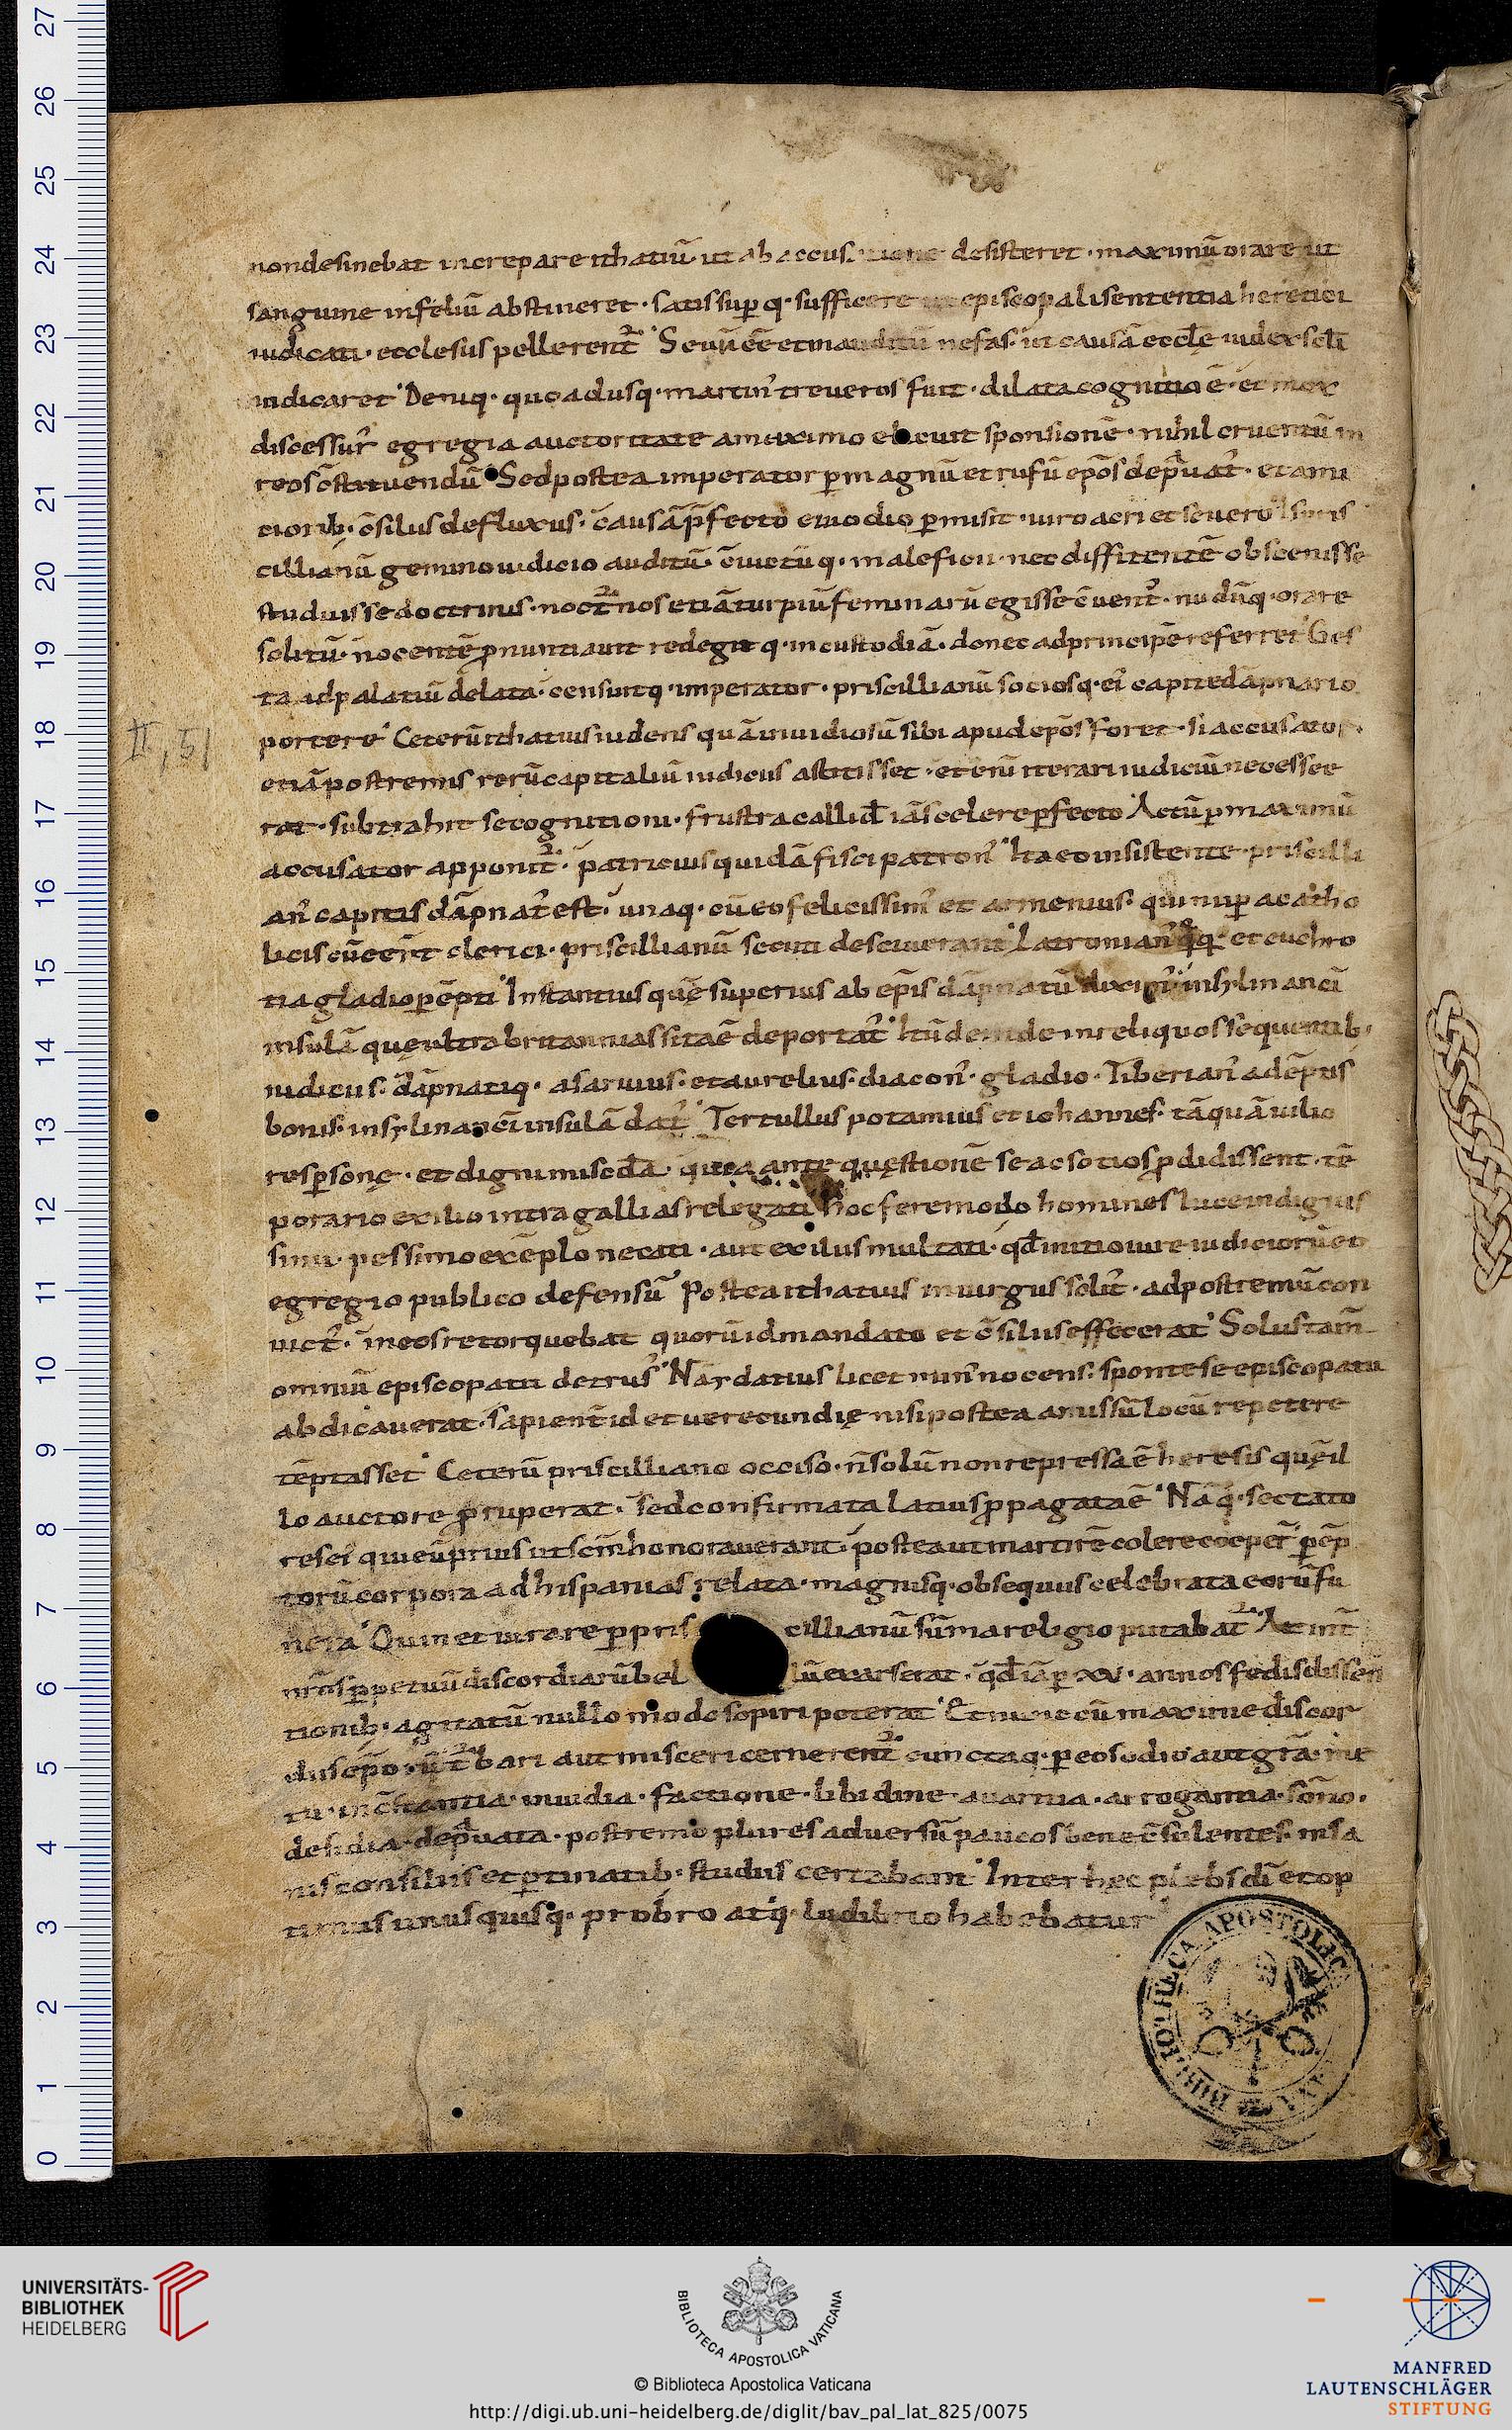 nondesinebat increpare ithatiū· ut ab accusatione desisteret· maximū orare ut
sanguine infeliū abstineret· satis sup̄ q· sufficere ut episcopali sententia heretici
iudicati· ecclesiis pellerent᷑ Seuū eē et inauditū nefas· ut causā eccłę iudex scłi
iudicaret Deniq· quoadusq· martin᾽ treueros fuit· dilata cognitio ē· et mox
discessur᾽ egregia auctoritate a maximo elicuit sponsionē· nihil cruentū in
reos c̄stituendū Sed postea imperator p̄ magnū et rufū ep̄os dep̄uat᾽· et a mi
tiorib; c̄siliis defluxus· causā p̄fecto euodio p̄misit· uiro acri et seuero Is pris
cillianū gemino iudicio auditū· c̄uictū q· maleficii· nec diffitentē obscenis se
studuisse doctrinis· noct᷑nos etiā turpiū feminarū egisse c̄uent᾽· nudū q· orare
solitū· nocentē p̄nuntiauit redegit q· in custodiā· donec ad principē referret Ges
ta ad palatiū delata· censuitq· imperator· priscillianū sociosq· ei᾽ capite dāpnari o
portere Ceterū ithatius uidens quā inuidiosū sibi apud ep̄os foret· si accusator
etiā postremis rerū capitaliū iudiciis astitisset· etenī iterari iudiciū necesse e
rat· subtrahit se cognitioni· frustra callid᾽ iā scelere p̄fecto Actū p̄ maximū
accusator apponit᷑· patricius quidā fisci patron᾽ Ita eo insistente priscilli
an᾽ capitis dāpnat᾽ est· unaq· cū eo felicissim᾽ et armenius· qui nup̄ a catho
licis cū eēnt clerici· priscillianū secuti desciuerant Latronian᾽ qq· et euchro
tia gladio p̄ēpti Instantius quē superius ab ep̄is dāpnatū diximus in sylinanci
insulā quę ultra britannias sita ē deportat᾽ Itū deinde in reliquos sequentib;
iudiciis· dāpnatiq· asariuus· et aurelius· diacon᾽ gladio· Tiberian᾽ adēptis
bonis· in sylinanci insulā dat᾽ Tertullus potamius et iohannes· tāquā uilio
res p̄sonę· et digni misc̄da· quia ante quęstionē se ac sotios p̄didissent· tē
porario exilio intra gallias relegati hoc fere modo homines luce indignis
simi· pessimo exēplo necati· aut exiliis multati· qđ initio iure iudiciorū et
egregio publico defensū Postea ithatius in iurgiis solit᾽· ad postremū con
uict᾽· in eos retorquebat quorū id mandato et c̄siliis effecerat Solus tam̄
omniū episcopatu detrus᾽ Nardatius licet min᾽ nocens· sponte se episcopatu
abdicauerat· sapient̄ id et uerecundię nisi postea amissū locū repetere
tēptasset Ceterū priscilliano occiso· n̄ solū non repressa ē heresis quę il
lo auctore p̄ruperat· sed confirmata latius p̄pagata ē Nāq· sectato
res ei᾽ qui eū prius ut sc̄m honorauerant· postea ut martirē colere coeper̄ p̄ēp
torū corpora ad hispanias relata· magnisq· obsequiis celebrata eorū fu
nera Quin et iurare p̄ pris cillianū sūma religio putabat᷑ At int̄
nr̄os p̄petuū discordiarū bel lū exarserat· qđ iā p̄ xv· annos fedis dissen
tionib; agitatū nullo modo sopiri poterat Et nunc cū maxime discor
diis ep̄orū t᷑bari aut misceri cernerent᷑ cunctaq· p̄ eos odio aut gr̄a· me
tu· inc̄stantia· inuidia· factione· libidine· auaritia· arrogantia· sōno·
desidia· dep̄uata· postremo plures aduersū paucos bene c̄sulentes· insa
nis consiliis et p̄tinatib; studiis certabant Inter hęc plebs dī et op
timus unus quisq· probro atq· ludibrio habebatur
II, 51
BIBLIOTHECA APOSTOLICA
27
26
25
24
23
22
21
20
19
18
17
16
15
14
13
12
11
10
9
8
7
6
5
4
3
2
1
0
UNIVERSITÄTS-
BIBLIOTHEK
HEIDELBERG
BIBLIOTECA APOSTOLICA VATICANA
© Biblioteca Apostolica Vaticana
http://digi.ub.uni-heidelberg.de/diglit/bav_pal_lat_825/0075
MANFRED
LAUTENSCHLÄGER
STIFTUNG